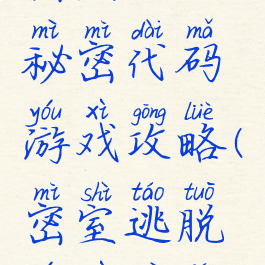 mì mì dài mǎ
秘密代码
yóu xì gōng lüè
游戏攻略(
mì shì táo tuō
密室逃脱